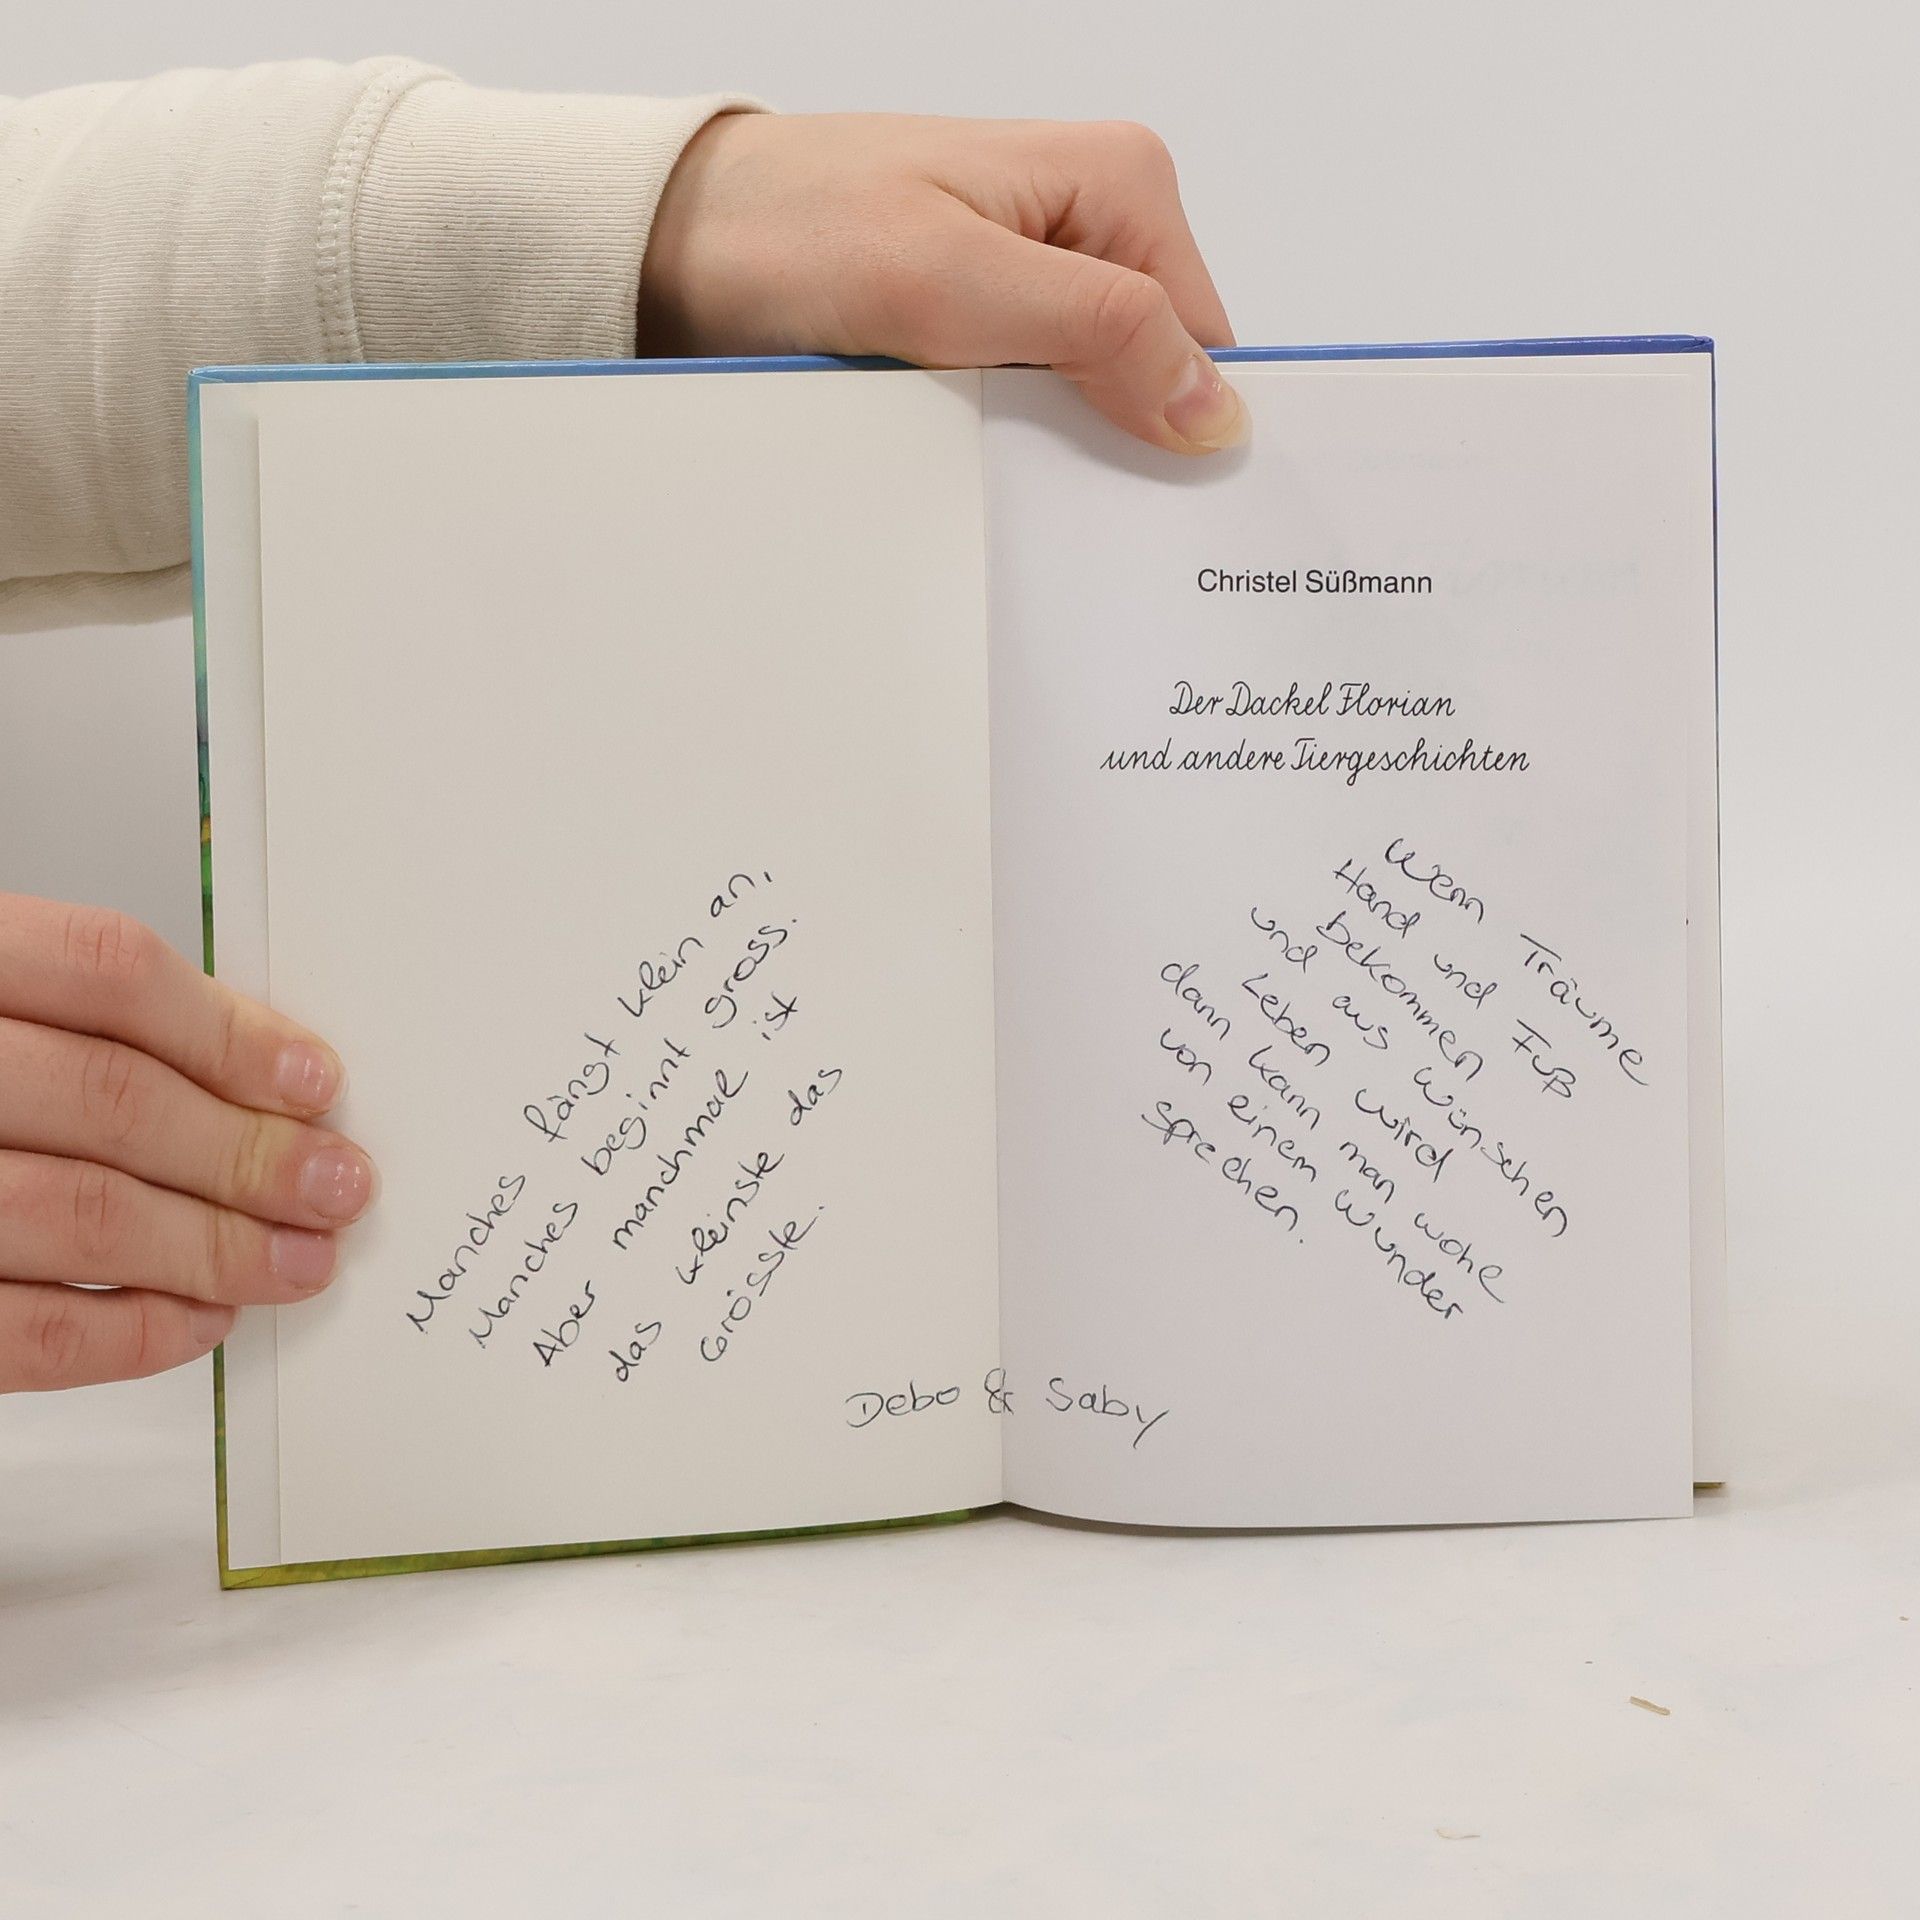 Manches fängt klein an,
Manches beginnt gross.
Aber manchmal ist
das kleinste das
Grösste.
Christel Süßmann
Der Dackel Florian
und andere Tiergeschichten
Wenn Träume
Hand und Fuß
bekommen
und aus Wünschen
Leben wird
dann kann man wohe
von einem Wunder
sprechen.
Debo & Saby